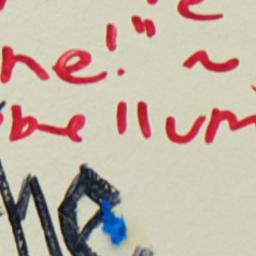 e
ne!" ~
bellum
me